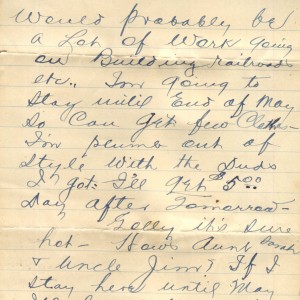 Would probably be
a Lot of Work going
on Building railroads
etc., I'm going to
Stay until End of May
So Can Get few Clothes
I'm plumb out of
Style With the Duds
I got. I'll get $5.00
Day after Tomorrow-
Golly it's sure
hot- Hows Aunt Sarah
& Uncle Jim? If I
Stay here until May